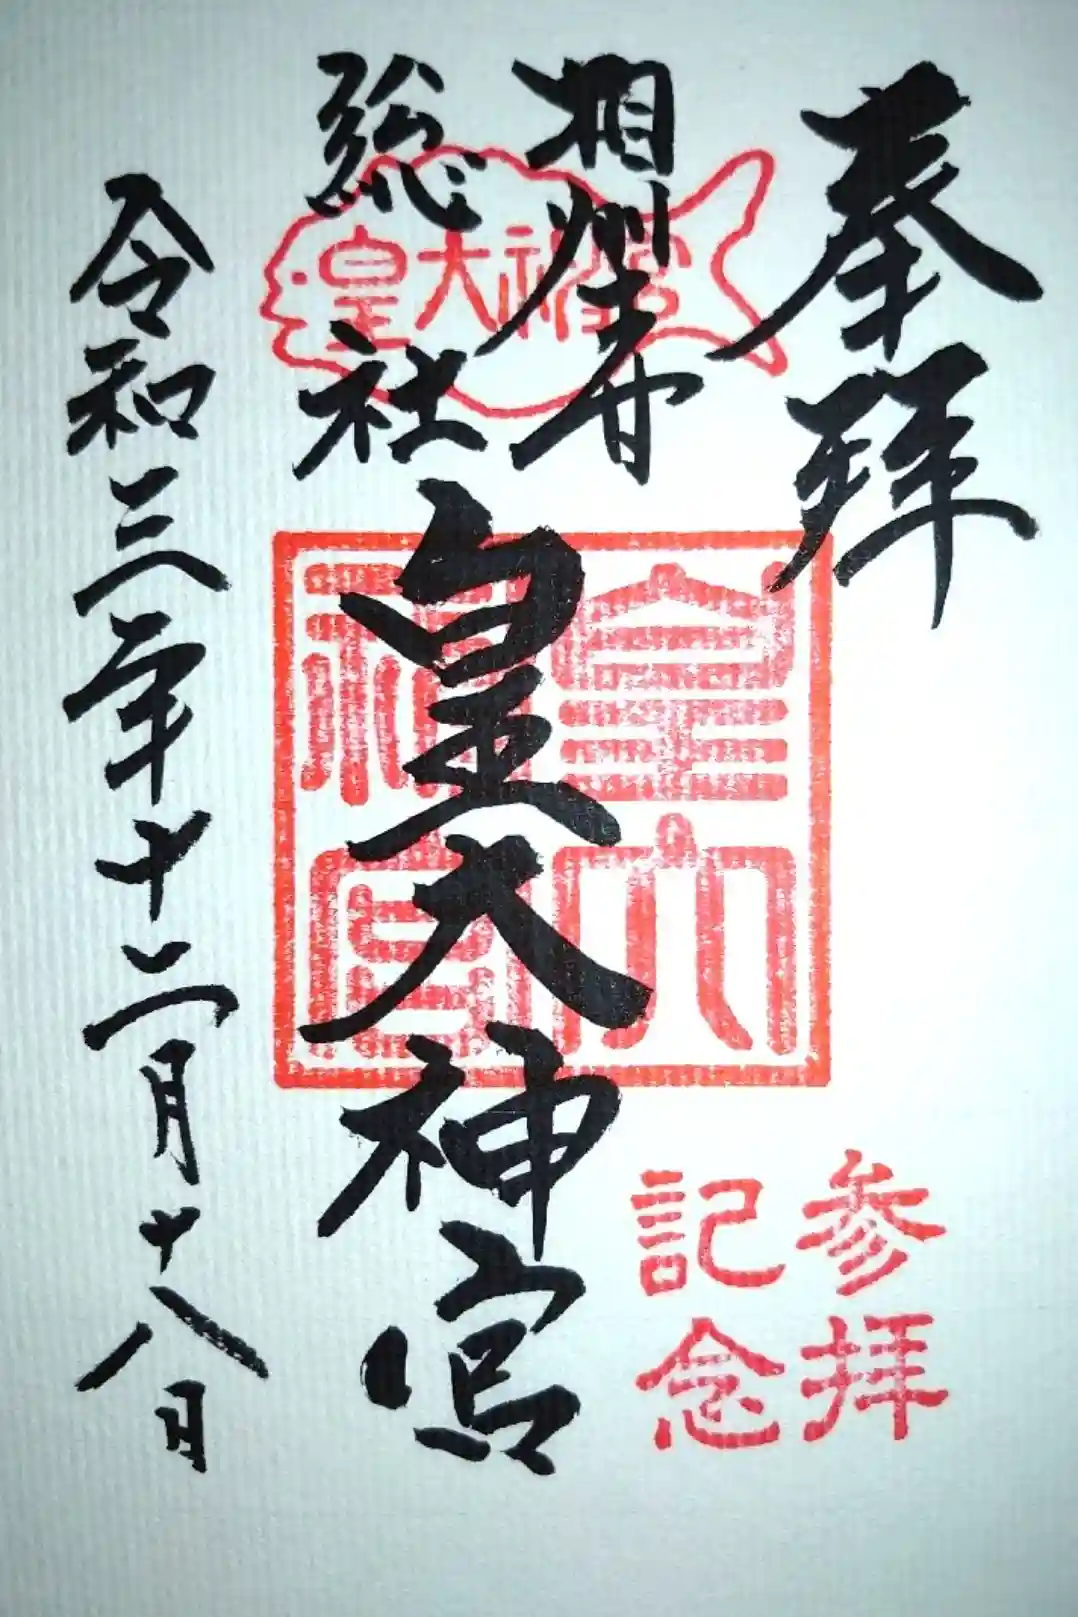 奉拝
相州土甘
総社
皇大神宮
皇大神宮
皇大
神宮
参拝
記念
令和三年十二月十八日